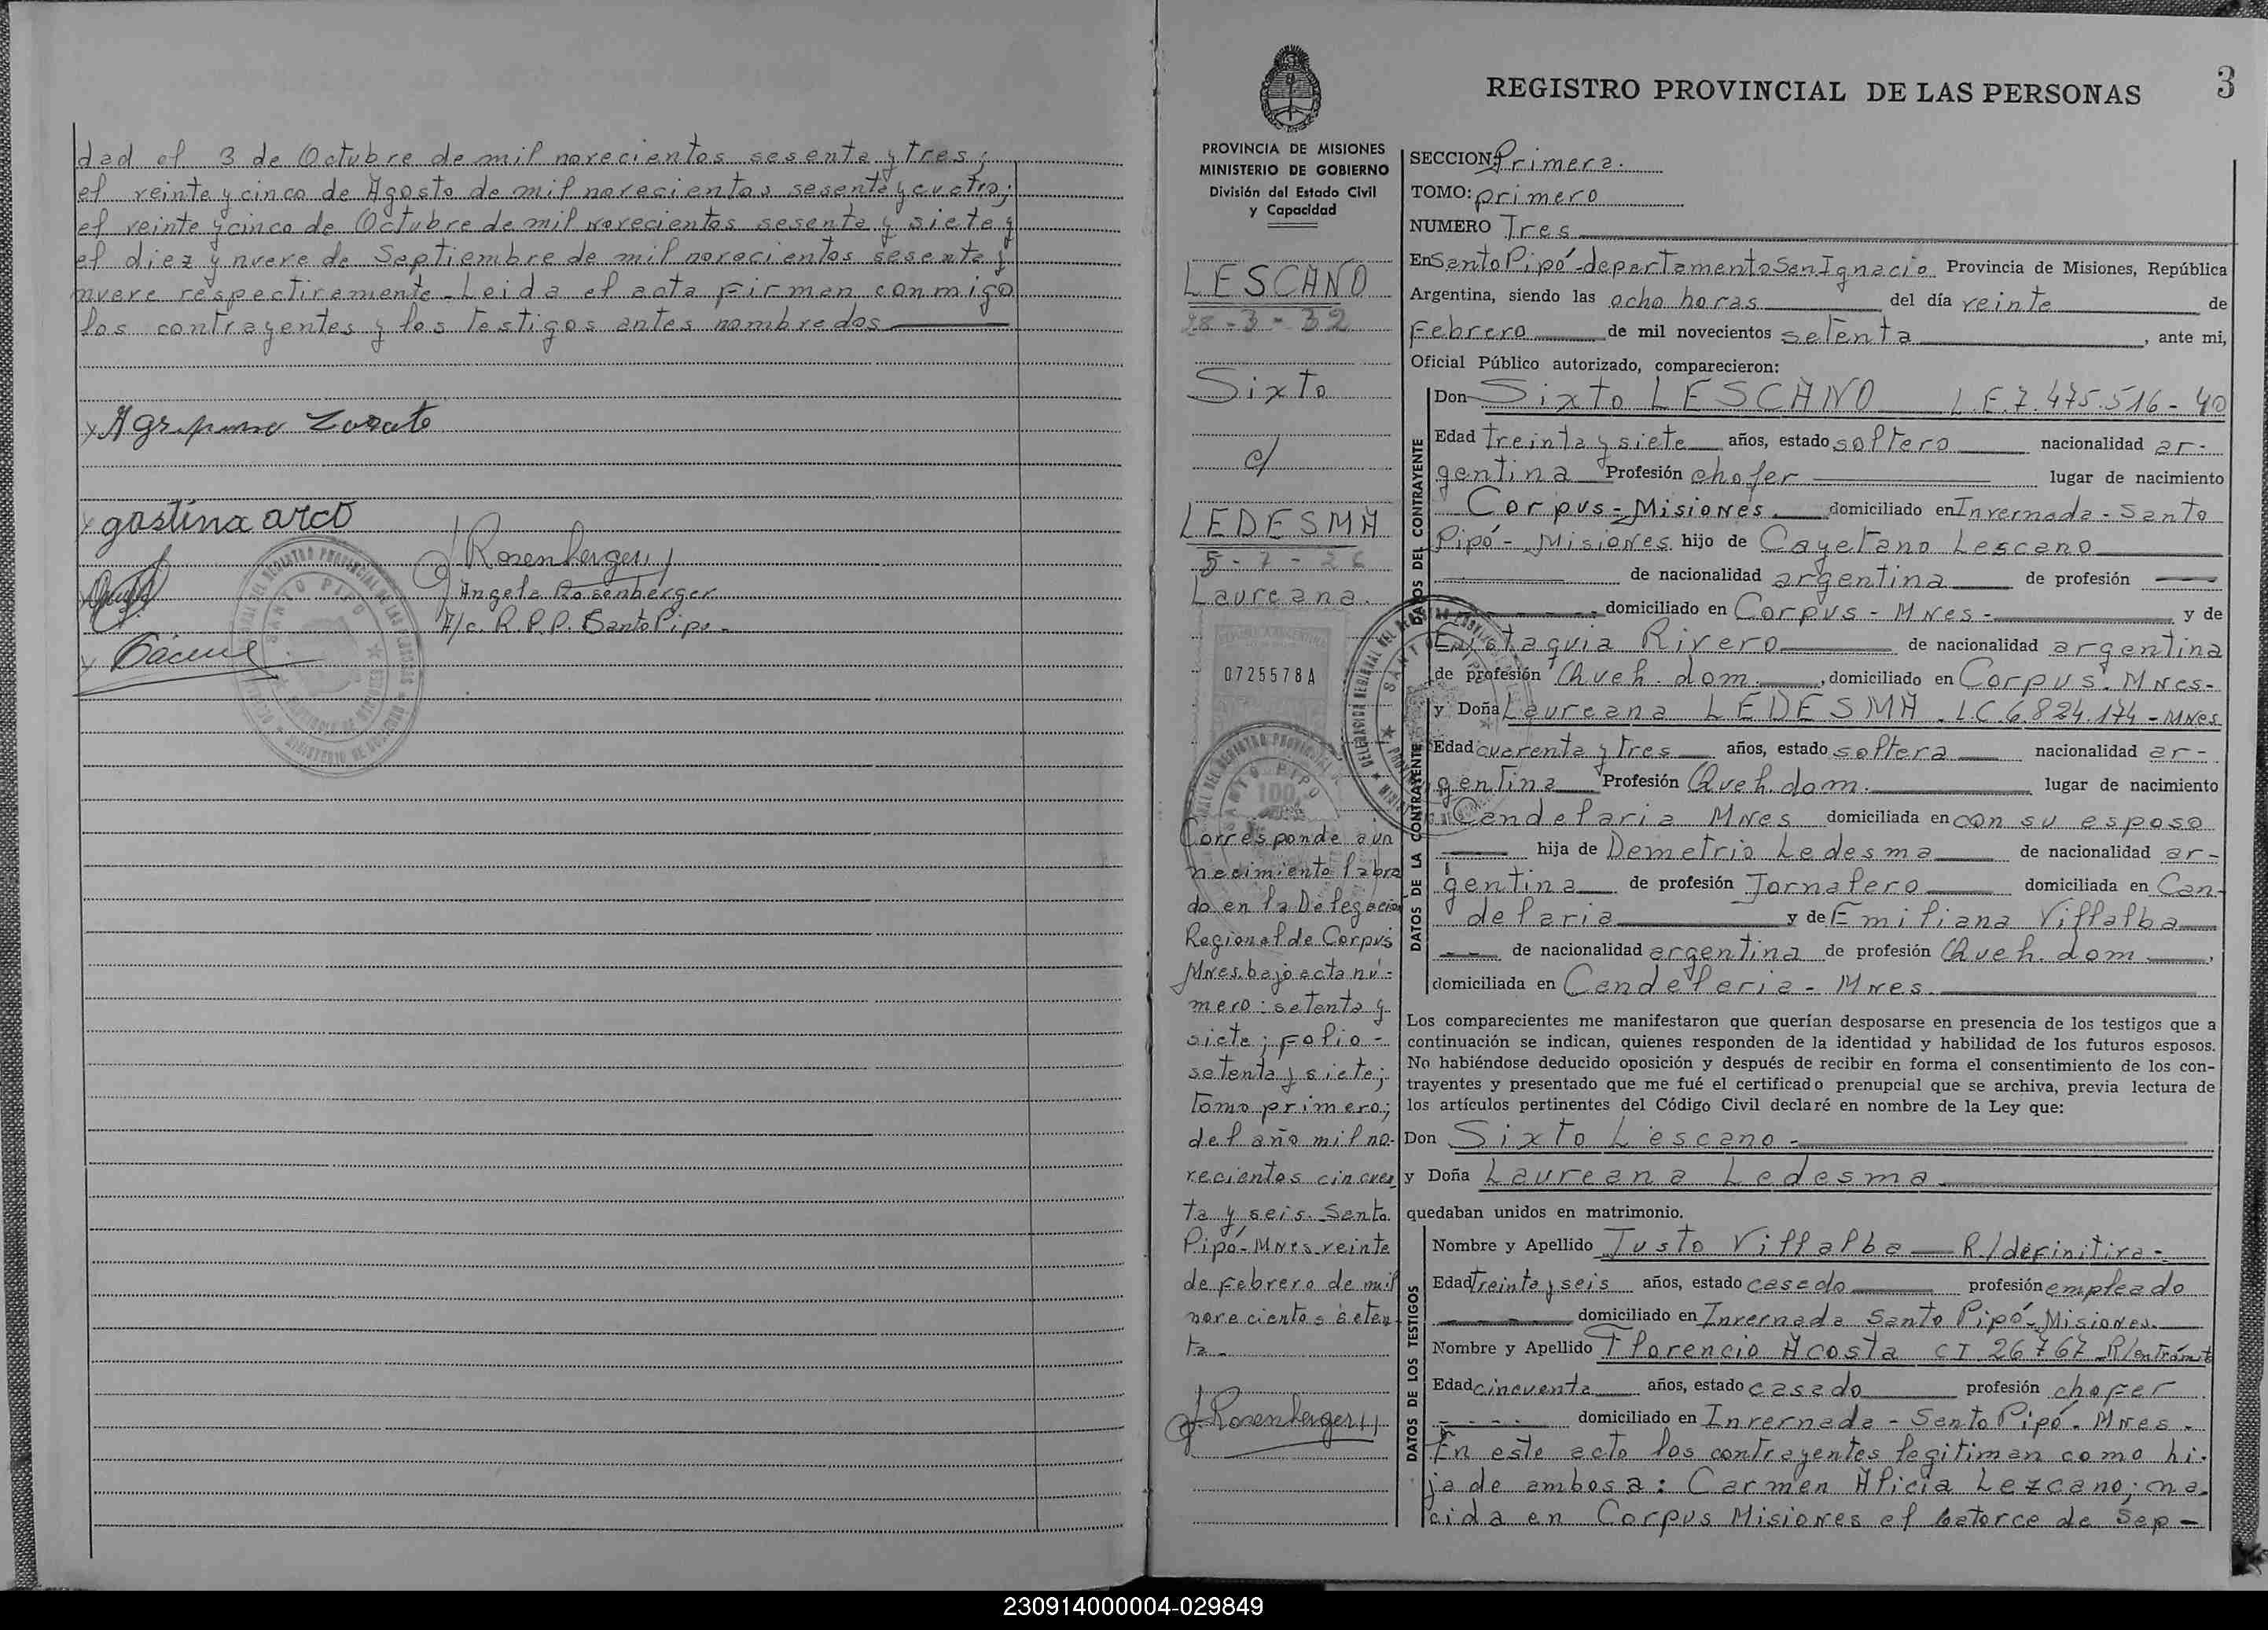 dad el 3 de Octubre de mil novecientos sesenta y tres;
el veinte y cinco de Agosto de mil novecientos sesenta y cuatro;
el veinte y cinco de Octubre de mil novecientos sesenta y siete y
el diez y nueve de Septiembre de mil novecientos sesenta y
nueve respectivamente. Leida el acta firman conmigo
los contrayentes y los testigos antes nombrados
x Agripino Zarate
x gostina arco
J Rosenberger
Angela Rosenberger
A/c. R.P.P. Santo Pipó -
3
REGISTRO PROVINCIAL DE LAS PERSONAS
PROVINCIA DE MISIONES
MINISTERIO DE GOBIERNO
División del Estado Civil
y Capacidad
LESCANO
28-3-32
Sixto
c/
LEDESMA
5-7-26
Laureana.
0725578A
SANTO PIPO
Corresponde a un
necimiento labra
do en la Delegacion
Regional de Corpus
Mnes. bajo acta nú-
mero: setenta y
siete; folio -
setenta y siete;
Tomo primero;
del año mil no-
vecientos cincuen
ta y seis. Santo
Pipó-Mnes veinte
de febrero de mil
novecientos seten
ta -
J Rosenberger
SECCION: Primera.
TOMO: primero
NUMERO Tres
En Santo Pipó - departamento San Ignacio Provincia de Misiones, República
Argentina, siendo las ocho horas del día veinte de
Febrero de mil novecientos setenta, ante mi,
Oficial Público autorizado, comparecieron:
DATOS DEL CONTRAYENTE
Don Sixto LESCANO L.E. 7.475.516 - 40
Edad treinta y siete años, estado soltero nacionalidad ar-
gentina Profesión chofer lugar de nacimiento
Corpus - Misiones. domiciliado en Invernada - Santo
Pipó - Misiones hijo de Cayetano Lescano
de nacionalidad argentina de profesión
domiciliado en Corpus - Mnes - y de
Eustaquia Rivero de nacionalidad argentina
de profesión Queh. dom., domiciliado en Corpus. Mnes-
DATOS DE LA CONTRAYENTE
y Doña Laureana LEDESMA. L.C. 6.824.174 - Mnes
Edad cuarenta y tres años, estado soltera nacionalidad ar-
gentina Profesión Queh. dom. lugar de nacimiento
Candelaria Mnes domiciliada en con su esposo
hija de Demetrio Ledesma de nacionalidad ar-
gentina de profesión Jornalero domiciliada en Can-
delaria y de Emiliana Villalba
de nacionalidad argentina de profesión Queh. dom,
domiciliada en Candelaria - Mnes.
Los comparecientes me manifestaron que querían desposarse en presencia de los testigos que a
continuación se indican, quienes responden de la identidad y habilidad de los futuros esposos.
No habiéndose deducido oposición y después de recibir en forma el consentimiento de los con-
trayentes y presentado que me fué el certificado prenupcial que se archiva, previa lectura de
los artículos pertinentes del Código Civil declaré en nombre de la Ley que:
Don Sixto Lescano -
y Doña Laureana Ledesma
quedaban unidos en matrimonio.
DATOS DE LOS TESTIGOS
Nombre y Apellido Justo Villalba R./definitiva -
Edad treinta y seis años, estado casado profesión empleado
domiciliado en Invernada Santo Pipó - Misiones.
Nombre y Apellido Florencio Acosta CI 26767 R/en Trámite
Edad cincuenta años, estado casado profesión chofer
domiciliado en Invernada - Santo Pipó - Mnes -
En este acto los contrayentes legitiman como hi-
ja de ambos a: Carmen Alicia Lezcano; na-
cida en Corpus Misiones el catorce de Sep-
230914000004-029849